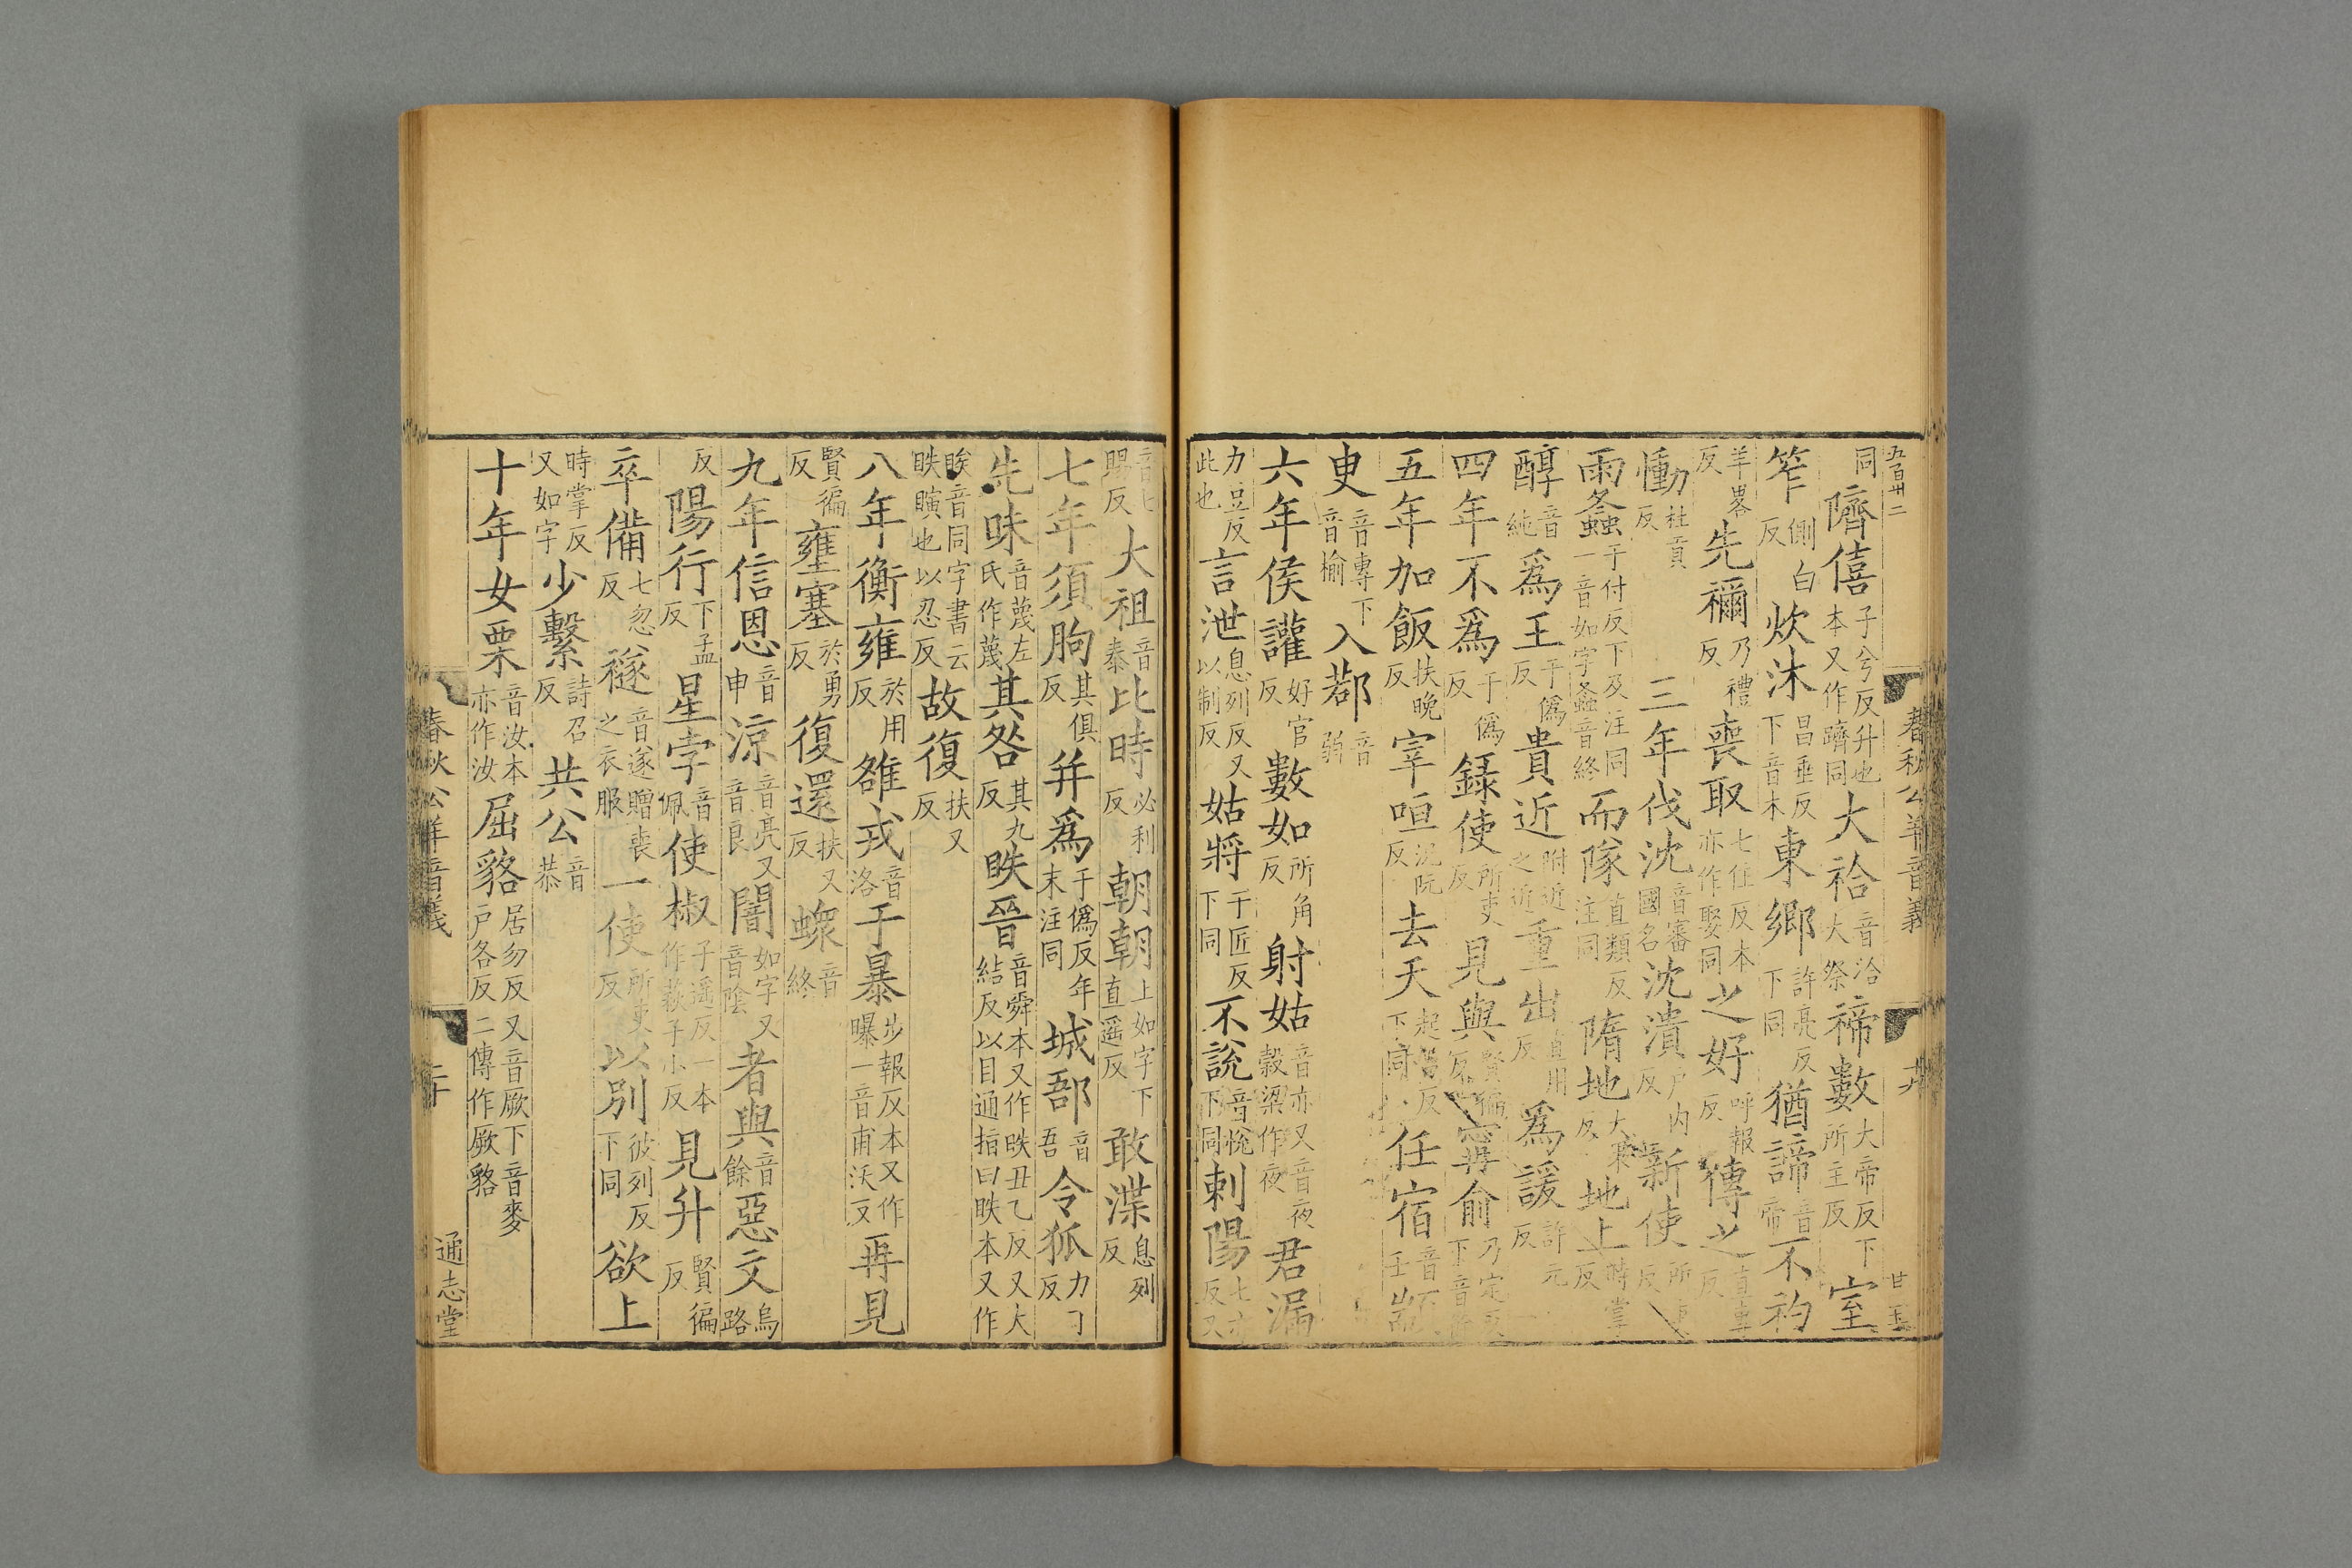 五百卅二
春秋公羊音義
同隮僖子兮反升也本又作躋同大祫音洽大祭禘數大帝反下所主反室
笮側白反炊沐昌垂反下音木東鄉許亮反下同猶諦音帝不礿
羊畧反先禰乃禮反喪取七住反本亦作娶同之好呼報反傳之直專反
慟杜貢反三年伐沈音審國名沈潰戶內反新使所吏反
雨螽于付反下及注同一音如字螽音終而隊直類反注同隋地大果反地上時掌反
醇音純爲王于僞反貴近附近之近重出直用反爲諼許元反
四年不爲于僞反錄使所吏反見與賢徧反甯俞乃定反下音餘
五年加飯扶晚反宰咺況阮反去天起呂反下同任宿音壬
臾音專下音榆入鄀音弱
六年侯讙好官反數如所角反射姑音亦又音夜穀梁作夜君漏
力豆反此也言泄息列反又以制反姑將子匠反下同不說音悅下同刺陽七亦反又
音七賜反大祖音泰比時必利反朝朝上如字下直遥反敢渫息列反
七年須朐其俱反并爲于僞反年末注同城郚音吾令狐力丁反
先昧音蔑左氏作蔑其咎其九反眣晉音舜本又作眣丑乙反又大結反以目通指曰眣本又作
䀢音同字書云眣瞚也以忍反故復扶又反
八年衡雍於用反雒戎音洛于暴步報反本又作曝一音甫沃反再見
賢徧反壅塞於勇反復還扶又反蝝音終
九年信恩音申涼音亮又音良闇如字又音陰者與音餘惡文烏路
反陽行下孟反星孛音佩使椒子遥反一本作萩子小反見升賢徧反
卒備七忽反襚音遂贈喪之衣服一使所吏反以別彼列反下同欲上
時掌反又如字少繫詩召反共公音恭
十年女栗音汝本亦作汝屈貉居勿反又音厥下音麥戶各反二傳作厥貉
春秋公羊音義
二十
通志堂